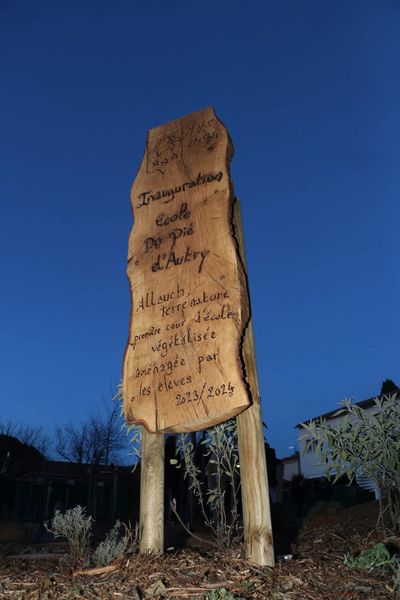 Inauguration
école
De Pié
d'Autry
Allauch,
terre nature
première cour d'école
végétalisée
aménagée par
les élèves
2023/2024